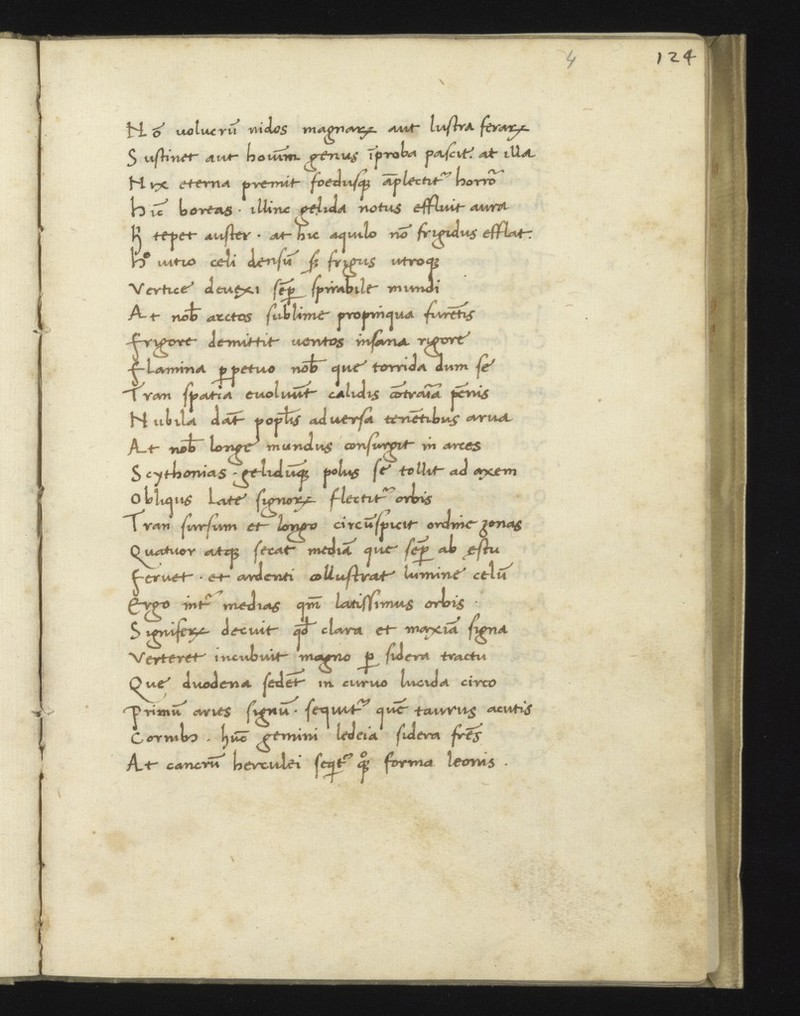 4 124
Nō volucrū nidos magnaꝝ aut lustra feraꝝ
Sustinet aut hominum genus īproba pascit: at illa
Nix eterna premit foedusqꝫ āplectitᷣ horrōr
hīc boreas · illinc gelida notus effluit aura
tepet auster · at hic aquilo nō frigidus efflat:
vitio celi densū sꝫ frigus utroqꝫ
Vertice deuexi sēꝑ spirabile mundi
At nob̄ arctos sublime propinqua furētis
Frigore demittit ventos insana rigore
Flamina ꝑpetuo nob̄ que torrida dum se
Tran spatia evoluūt calidis cōtraīa pēnis
Nubila dāt popl̄is adversa tenētibus arva
At nob̄ longe mundus consurgit in arces
Scythonias · gelidūqꝫ polus se tollit ad axem
Obliqus Late signoꝝ flectitᷣ orbis
Tran sursum et longo circūspicit ordine zonas
Quatuor atqꝫ secat mediā que sēꝑ ab ęstu
Fervet · et ardenti collustrat lumine celū
Ergo intᷣ medias qm̄ latissimus orbis ·
Signifeꝝ decuit qd̄ clara et maxīa signa
Verteret incubuit magno ꝑ sidera tractu
Que duodena sedēt in curvo lucida circo
Primū aries signū · sequitᷣ quē taurus acutis
Cornibꝫ · hūc gemini ledeia sidera frēs
At cancrū herculei seqitᷣ qͦqꝫ forma leonis ·